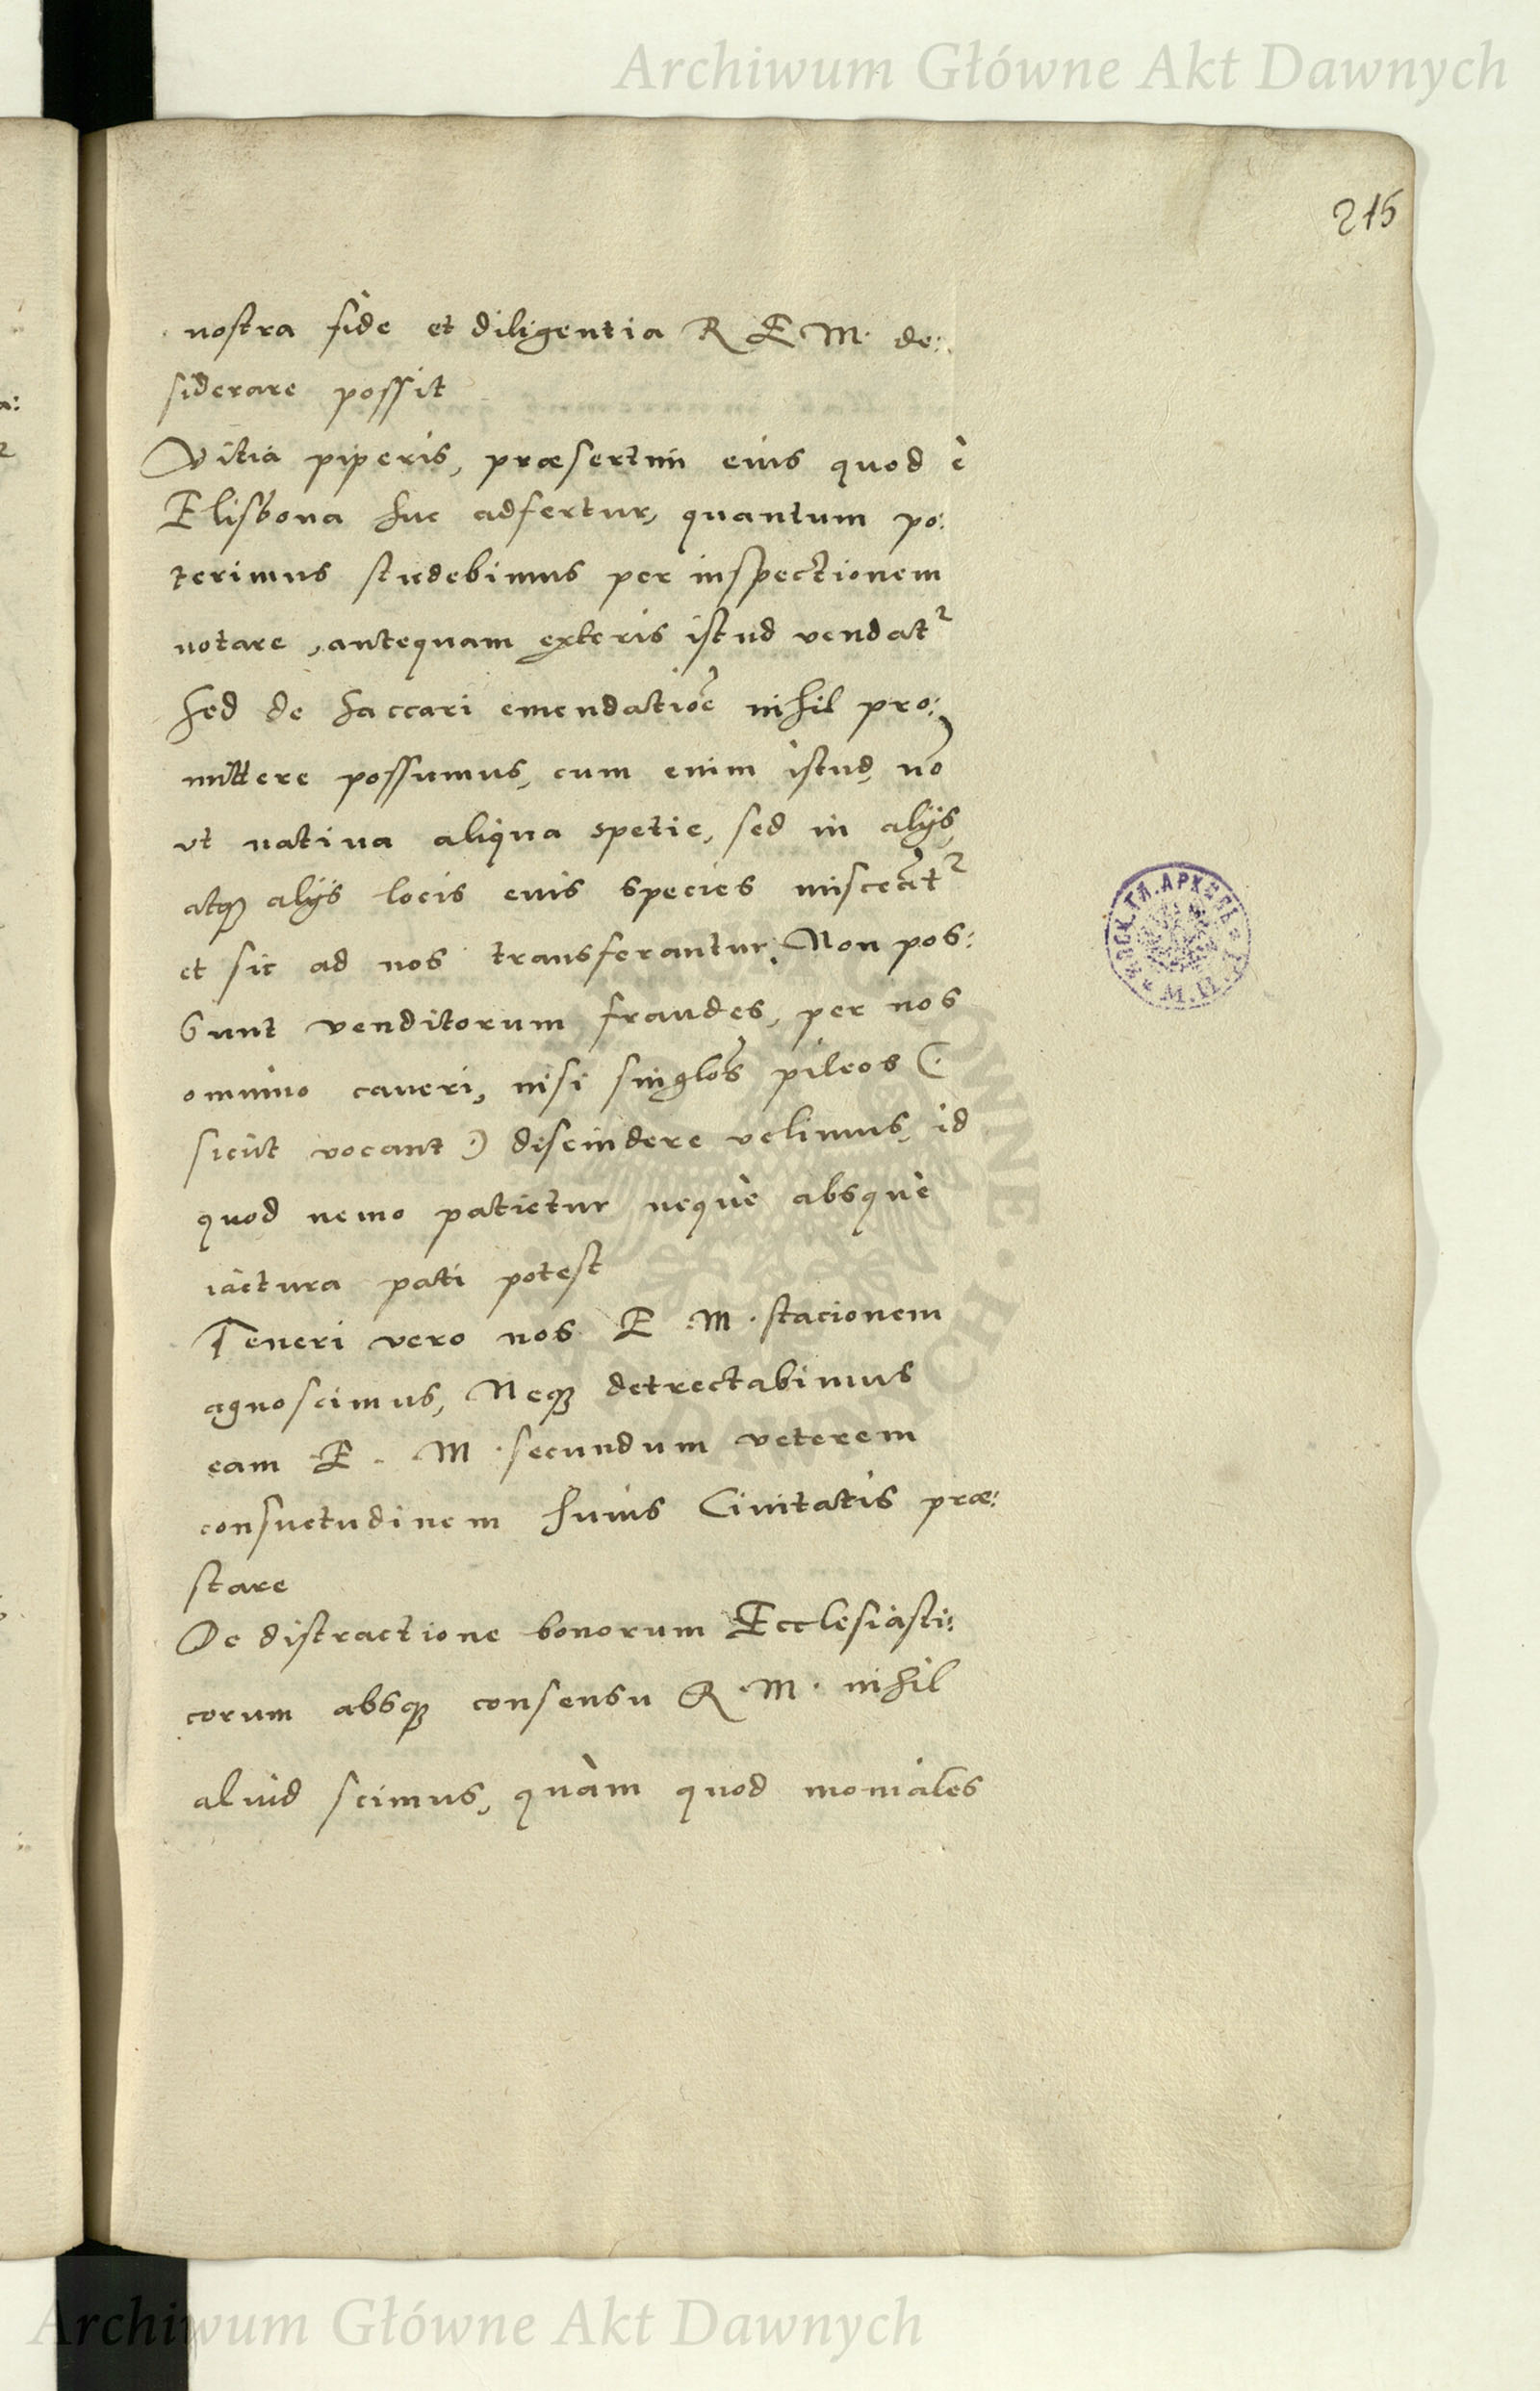 Archiwum Główne Akt Dawnych
215
nostra fide et diligentia R E M. de:
siderare possit
Vitia piperis, præsertim eius quod è
Elisbona huc adfertur, quantum po:
terimus studebimus per inspectionem
notare, antequam exteris istud vendat^r
Sed de Saccari emendatiõe nihil pro:
mittere possumus, cum enim istud nõ
vt natiua aliqua spetie, sed in alijs,
atq[ue] alijs locis eius species misceãt^r
et sic ad nos transferantur. Non pos:
sunt venditorum fraudes, per nos
omnino caueri, nisi singlõs pileos (:
sicut vocant :) discindere velimus, id
quod nemo patietur nequè absquè
iactura pati potest
Teneri vero nos E M. stacionem
agnoscimus, Neq[ue] detrectabimus
eam E. M. secundum veterem
consuetudinem huius Ciuitatis præ:
stare
De distractione bonorum Ecclesiasti:
corum absq[ue] consensu R. M. nihil
aliud scimus, quàm quod moniales
Archiwum Główne Akt Dawnych